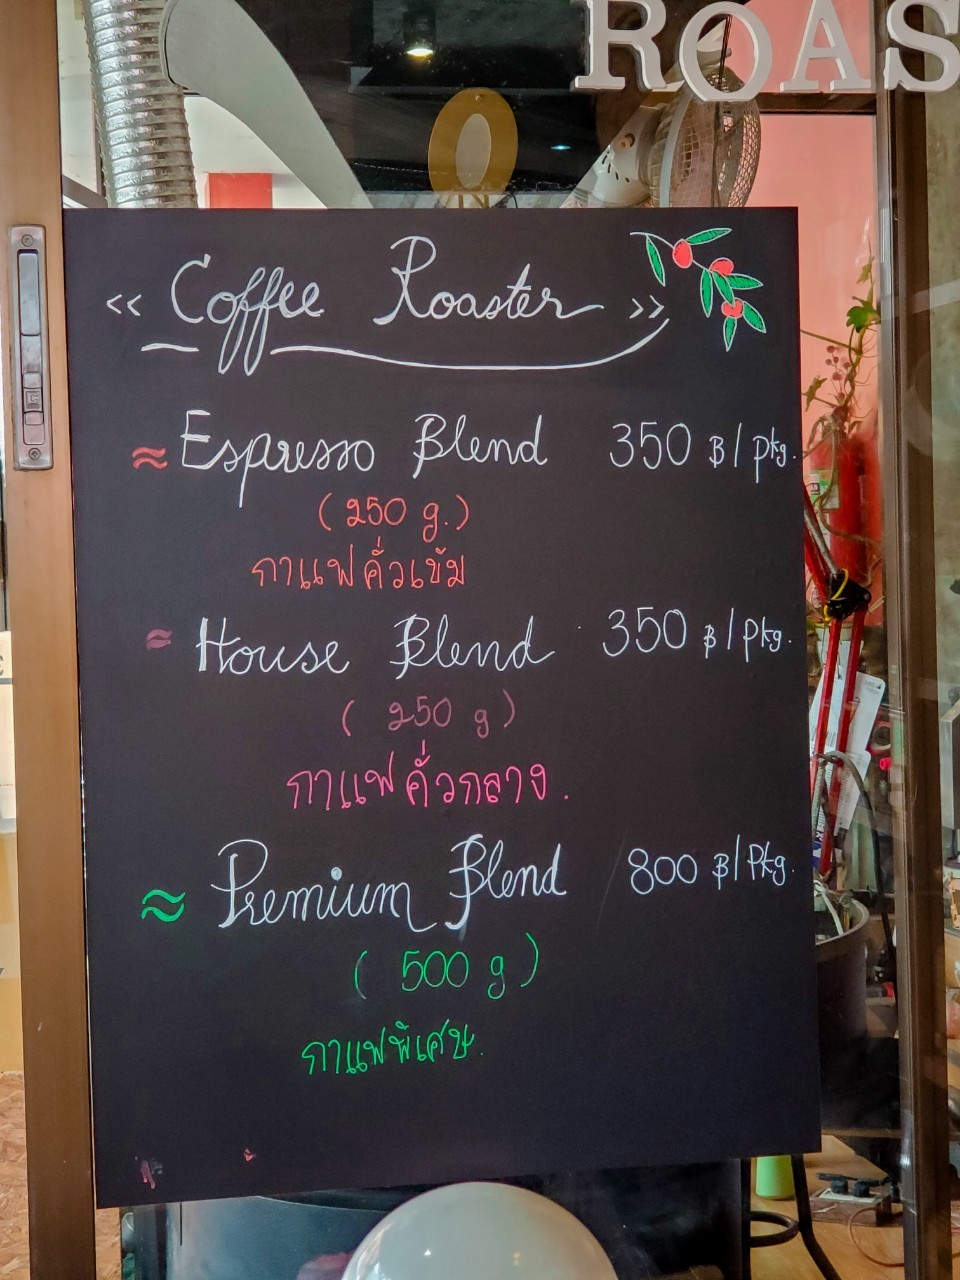 ROAS
<< Coffee Roaster >>
≈ Espresso Blend 350 ฿/pkg.
(250 g.)
กาแฟคั่วเข้ม
≈ House Blend 350 ฿/pkg.
( 250 g )
กาแฟคั่วกลาง.
≈ Premium Blend 800 ฿/Pkg.
( 500 g )
กาแฟพิเศษ.